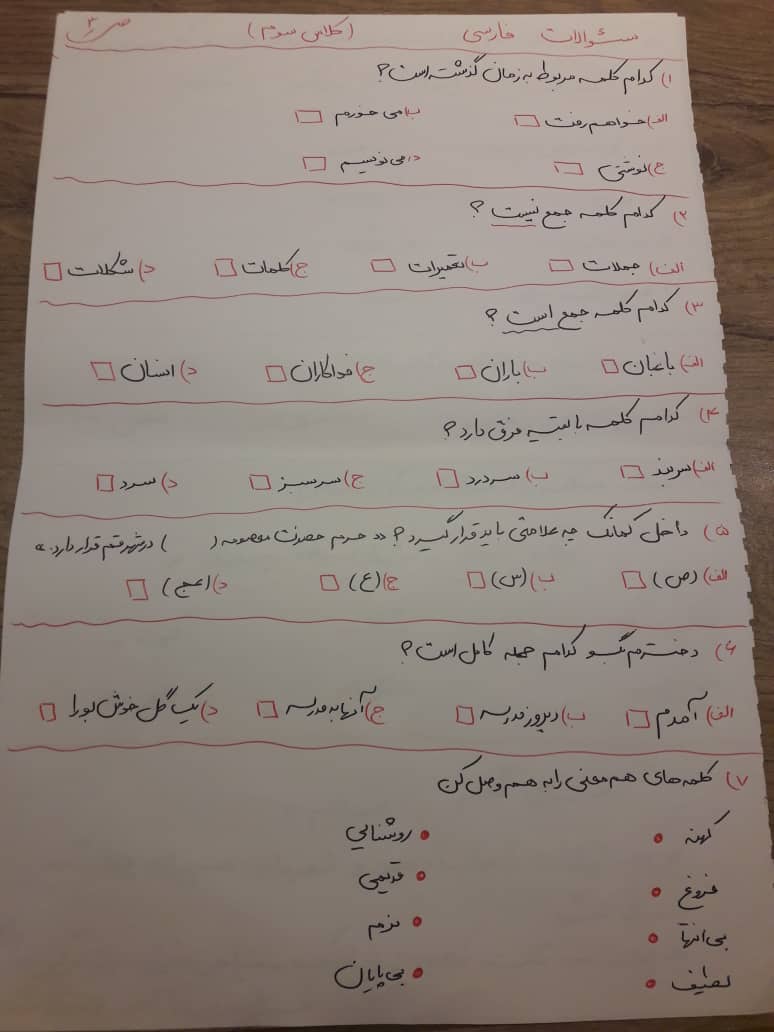 سئوالات فارسی (کلاس سوم) ص ۳
۱) کدام کلمه مربوط به زمان گذشته است؟
الف) خواهم رفت ب) می خورم
ج) نوشتی د) می نویسم
۲) کدام کلمه جمع نیست؟
الف) جملات ب) تغییرات ج) کلمات د) شکلات
۳) کدام کلمه جمع است؟
الف) باغبان ب) باران ج) فداکاران د) انسان
۴) کدام کلمه با بقیه فرق دارد؟
الف) سربند ب) سردرد ج) سرسبز د) سرد
۵) داخل کمانک چه علامتی باید قرار گیرد؟ «حرم حضرت معصومه ( ) در شهر قم قرار دارد.»
الف) (ص) ب) (س) ج) (ع) د) (عج)
۶) دخترم بگو کدام جمله کامل است؟
الف) آمدم ب) دیروز مدرسه ج) آنها به مدرسه د) یک گل خوش بو را
۷) کلمه های هم معنی را به هم وصل کن
کهنه روشنایی
فروغ قدیمی
بی انتها نرم
لطیف بی پایان